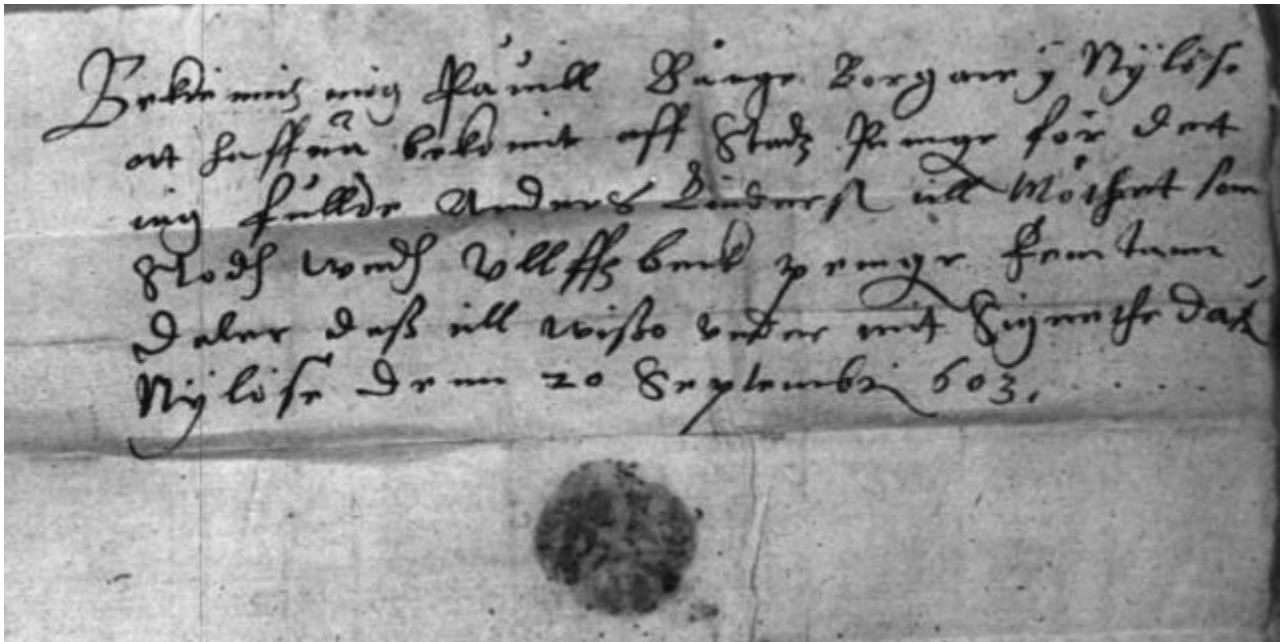 Bekennis mig Påuill Bånge Borgare ÿ Nÿlöse
att haffua bekomit aff Stadz Penge för dett
iag fullde Anders till Möthett som
Stodh wedh Vllffzbeck penge Femtann
Daler daß till wißo vnder mit Signethe Dat
Nÿlöse Denn 20 Septembr 603.